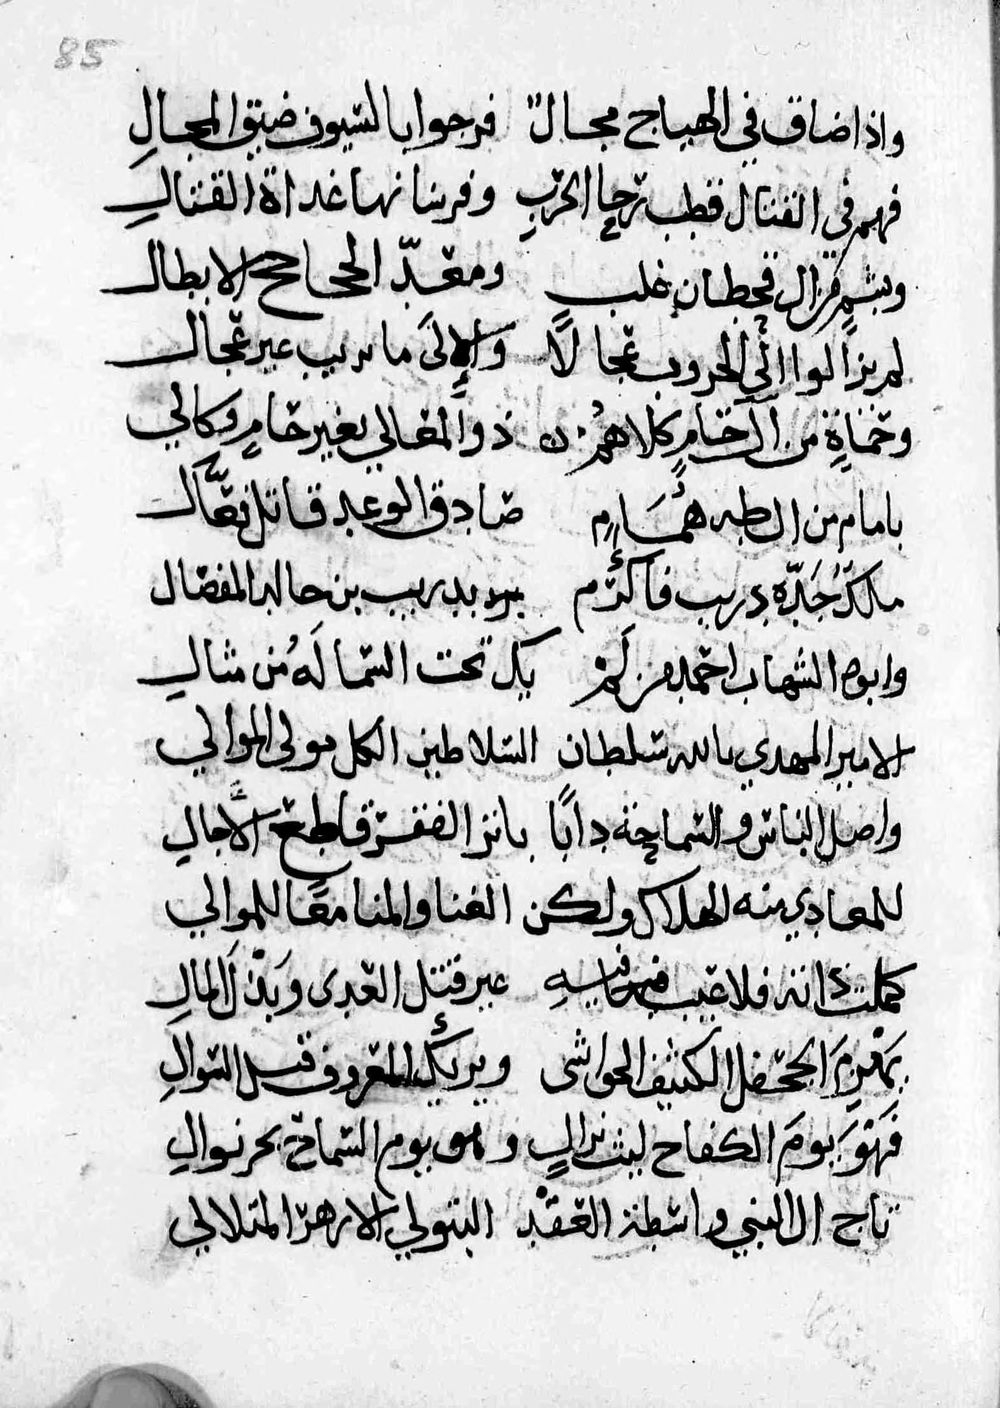 85
واذا ضاق في الهياج مجال فرحوا بالسيوف ضيق المجال
فهم في القتال قطب رحا الحرب وفرسانها غداة القتال
وبشم من ال قحطان غلب ومعد الجحاجح الابطال
لم يزالوا الى الحروب عجالا والى ما يريب غير عجال
وحماة من ال حام كلاهم ذو المعالي بغير حام وكالي
بامام من ال طه همام صادق الوعد قاتل فعال
ملك جده دريب فاكرم بدريب بن خالد المفضال
وابوه الشهاب احمد من لم يك تحت السما له من مثال
الامير المهدي بالله سلطان السلاطين الكل مولى الموالي
واصل الباس والسماحة دابا باتر الفقر قاطع الاجال
للمعادي منه الهلاك ولكن الغنا والمنا معا للموالي
كملت ذاته فلا عيب فيه غير قتل العدى وبذل المال
يهزم الجحفل الكثيف الحواشي ويريك المعروف قبل السوال
فهو يوم الكفاح ليث نزال وهو يوم السماح بحر نوال
تاج ال النبي واسطة العقد البتولي الازهر المتلالي